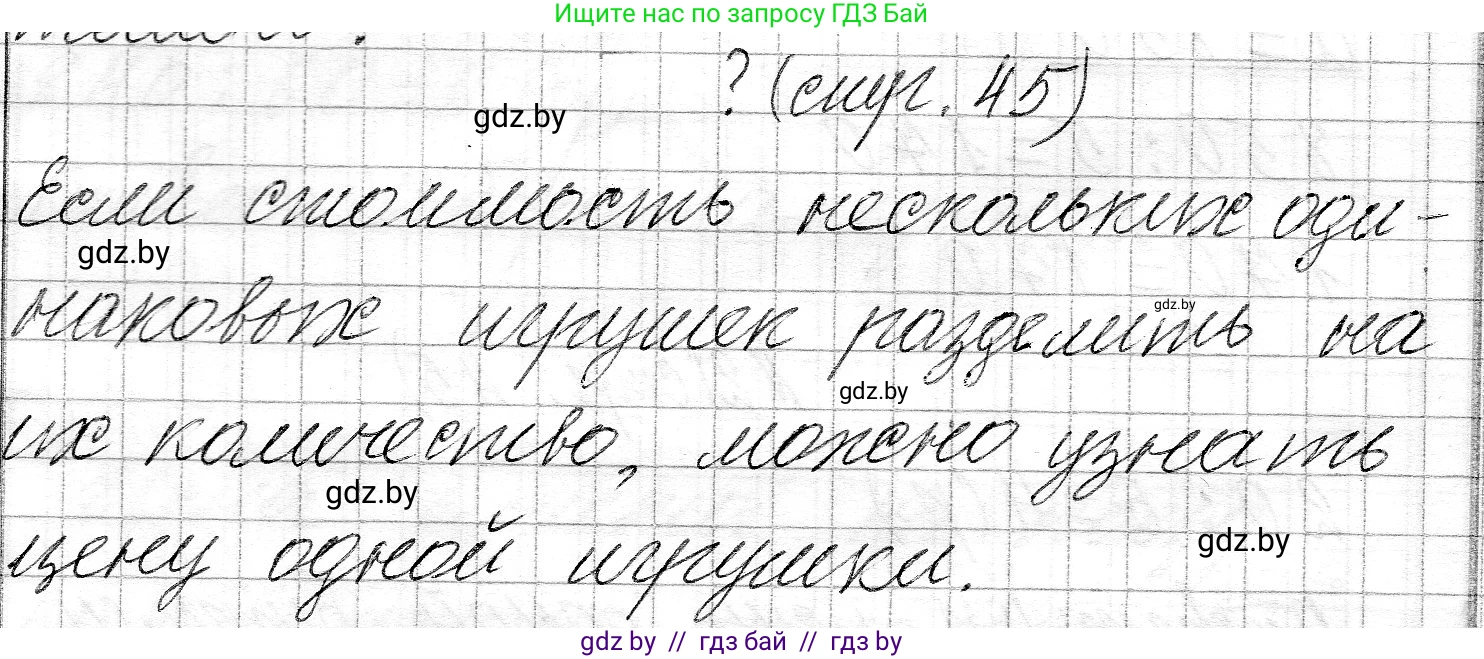 Ищите нас по запросу ГДЗ Бай
? (стр. 45)
gdz.by
Если стоимость нескольких оди-
gdz.by
наковых игрушек разделить на
gdz.by
gdz.by
их количество, можно узнать
gdz.by
цену одной игрушки.
gdz.by
gdz by // гдз бай // гдз by